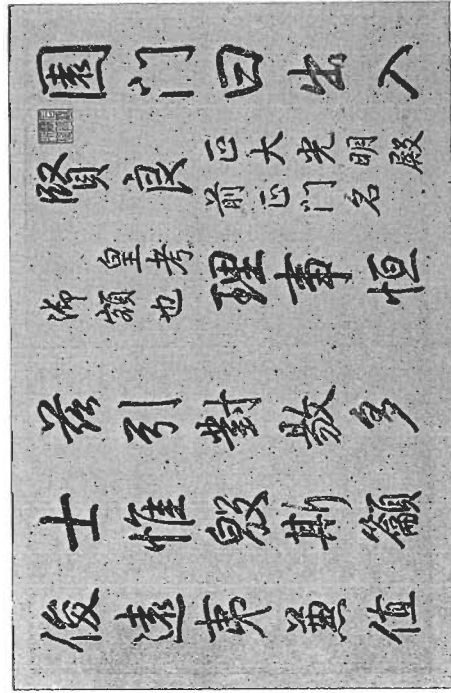 園門曰出入
賢良
正大光明殿
前正門名
皇考
御額也
理事恒
茲引對敭多
士惟殷斯籲
俊弗值